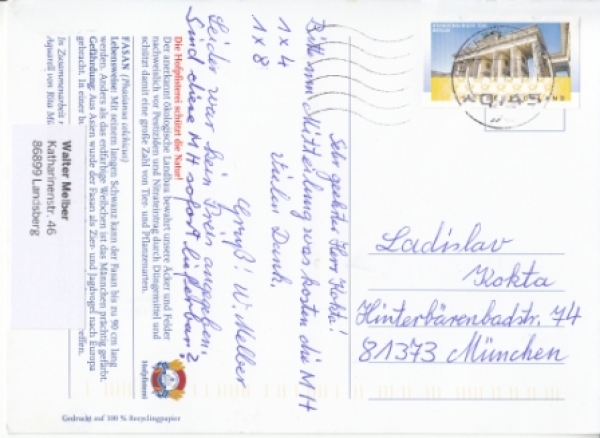 Sehr geehrter Herr Kokta!
Bitte um Mitteilung was kosten die MH
1x4
1x8
Vielen Dank.
Leider war kein Preis angegeben.
Sind diese MH sofort lieferbar?
Gruß! W. Melber
Ladislav
Kokta
Hinterbärenbadstr. 74
81373 München
BRANDENBURGER TOR
BERLIN
0,45
Die Hofpfisterei schützt die Natur!
Der anerkannt ökologische Landbau bewahrt unsere Äcker und Felder
nachweislich vor Pestiziden und Nitrateintrag durch Düngemittel und
schützt damit eine große Zahl von Tier- und Pflanzenarten.
FASAN (Phasianus colchicus)
Lebensweise: Mit seinem langen Schwanz kann der Fasan bis zu 90 cm lang
werden. Anders als das erdfarbige Weibchen ist das Männchen prächtig gefärbt.
Gefährdung: Aus Asien wurde der Fasan als Zier- und Jagdvogel nach Europa
gebracht. In einer
In Zusammenarbeit
Aquarell von Rita
Walter Melber
Katharinenstr. 46
86899 Landsberg
Hofpfisterei
Gedruckt auf 100 % Recyclingpapier